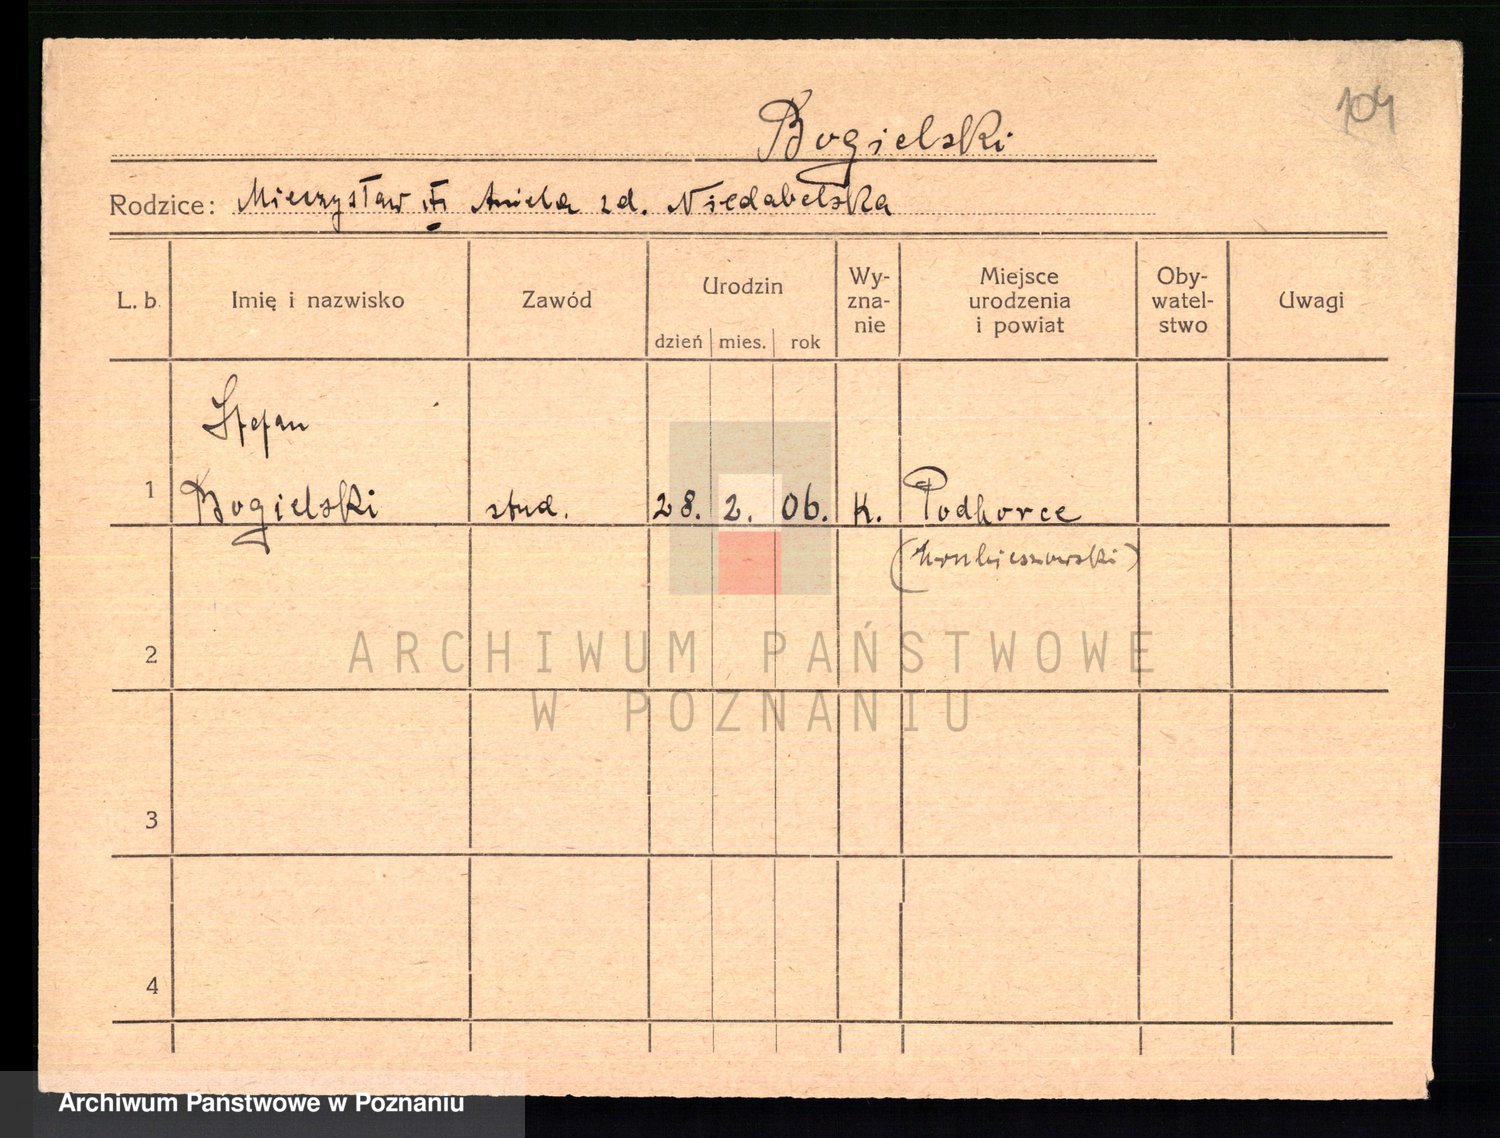 104
Bogielski
Rodzice: Mieczysław i Aniela zd. Niedabelska
L. b. Imię i nazwisko Zawód Urodzin Wy-zna-nie Miejsce urodzenia i powiat Oby-watel-stwo Uwagi
dzień mies. rok
Stefan
1 Bogielski stud. 28. 2. 06. K. Podhorce
(hrubieszowski)
2
ARCHIWUM PAŃSTWOWE
W POZNANIU
3
4
Archiwum Państwowe w Poznaniu